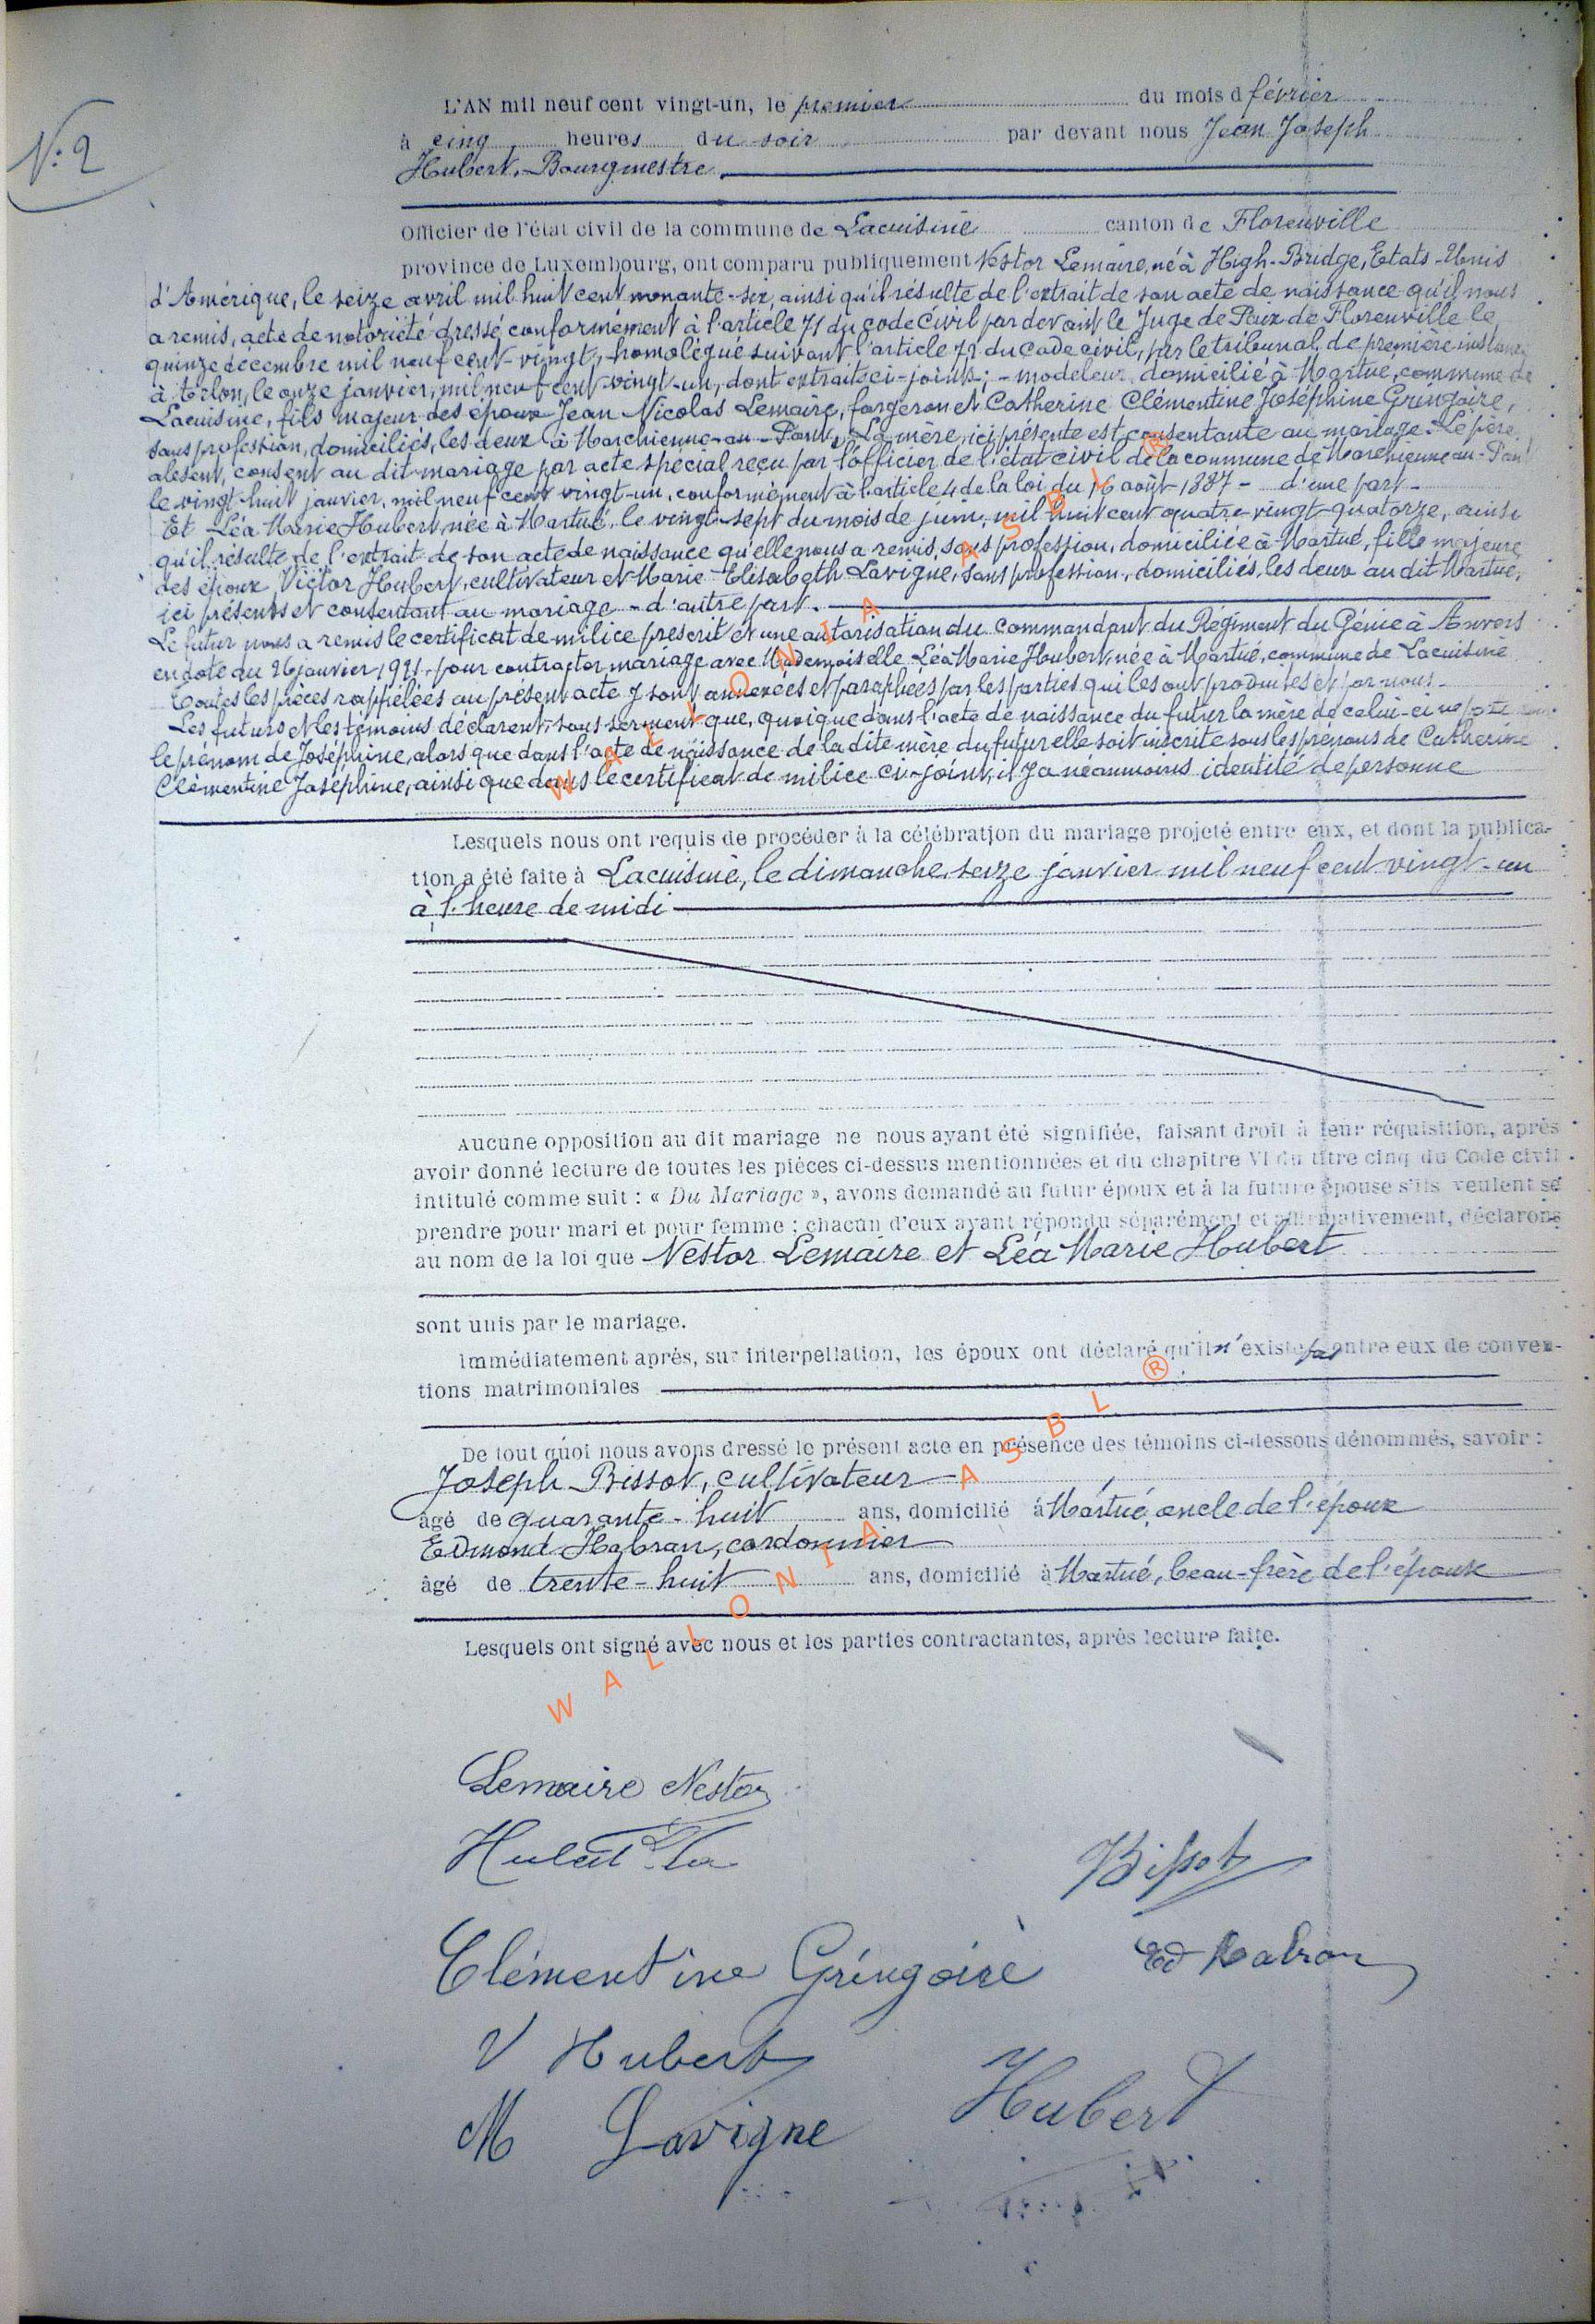 N: 2
L'AN mil neuf cent vingt-un, le premier du mois d février
à cinq heures du soir par devant nous Jean Joseph
Hubert, Bourgmestre
Officier de l'état civil de la commune de Lacuisine canton de Florenville
province de Luxembourg, ont comparu publiquement Nestor Lemaire, né à High-Bridge, Etats-Unis
d'Amérique, le seize avril mil huit cent nonante-six, ainsi qu'il résulte de l'extrait de son acte de naissance qu'il nous
a remis, acte de notoriété dressé conformément à l'article 71 du code Civil par devant le Juge de Paix de Florenville le
quinze décembre mil neuf cent vingt, homologué suivant l'article 72 du Code civil, par le tribunal de première instance
à Arlon, le onze janvier, mil neuf cent vingt-un, dont extraits ci-joints; - modeleur domicilié à Martué, commune de
Lacuisine, fils majeur des époux Jean Nicolas Lemaire, forgeron et Catherine Clémentine Joséphine Gringoire,
sans profession, domiciliés, les deux à Marchienne-au-Pont. La mère, ici présente est consentante au mariage. Le père,
absent, consent au dit mariage par acte spécial reçu par l'officier de l'état civil de la commune de Marchienne au-Pont
le vingt-huit janvier, mil neuf cent vingt-un, conformément à l'article 4 de la loi du 16 août 1887 - d'une part -
Et Léa Marie Hubert, née à Martué, le vingt-sept du mois de juin, mil huit cent quatre-vingt-quatorze, ainsi
qu'il résulte de l'extrait de son acte de naissance qu'elle nous a remis, sans profession, domiciliée à Martué, fille majeure
des époux Victor Hubert, cultivateur et Marie Elisabeth Lavigne, sans profession, domiciliés, les deux au dit Martué,
ici présents et consentant au mariage - d'autre part.
Le futur nous a remis le certificat de milice prescrit et une autorisation du Commandant du Régiment du Génie à Anvers
en date du 26 janvier 1921, pour contracter mariage avec Mademoiselle Léa Marie Hubert, née à Martué, commune de Lacuisine
Toutes les pièces rappelées au présent acte y sont annexées et paraphées par les parties qui les ont produites et par nous.
Les futurs et les témoins déclarent, sous serment que, quoique dans l'acte de naissance du futur la mère de celui-ci ne porte
le prénom de Joséphine, alors que dans l'acte de naissance de la dite mère du futur elle soit inscrite sous les prénoms de Catherine
Clémentine Joséphine, ainsi que dans le certificat de milice ci-joint, il y a néanmoins identité de personne
Lesquels nous ont requis de procéder à la célébration du mariage projeté entre eux, et dont la publica-
tion a été faite à Lacuisine, le dimanche, seize janvier mil neuf cent vingt-un
à l'heure de midi
Aucune opposition au dit mariage ne nous ayant été signifiée, faisant droit à leur réquisition, après
avoir donné lecture de toutes les pièces ci-dessus mentionnées et du chapitre VI du titre cinq du Code civil
intitulé comme suit : « Du Mariage », avons demandé au futur époux et à la future épouse s'ils veulent se
prendre pour mari et pour femme ; chacun d'eux ayant répondu séparément et affirmativement, déclarons
au nom de la loi que Nestor Lemaire et Léa Marie Hubert
sont unis par le mariage.
Immédiatement après, sur interpellation, les époux ont déclaré qu'il n'existe pas entre eux de conven-
tions matrimoniales
De tout quoi nous avons dressé le présent acte en présence des témoins ci-dessous dénommés, savoir :
Joseph Bissot, cultivateur
âgé de quarante-huit ans, domicilié à Martué, oncle de l'époux
Edmond Habran, cordonnier
âgé de trente-huit ans, domicilié à Martué, beau-frère de l'épouse
Lesquels ont signé avec nous et les parties contractantes, après lecture faite.
WALLONIA ASBL ®
WALLONIA ASBL ®
Lemaire Nestor
Hubert Léa
Bissot
Clémentine Gringoire
Ed Habran
V Hubert
Hubert
M Lavigne